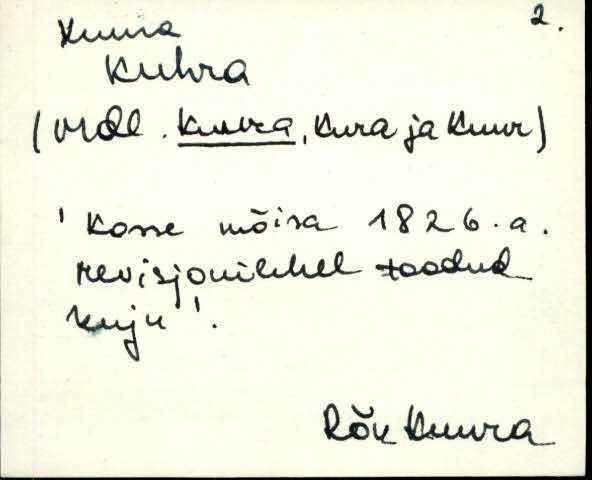 2.
Kuura
Kuhra
(vrdl. Kuura, Kura ja Kuur)
' Kosse mõisa 1826. a.
revisjonilehel toodud
kuju '.
Rõu Kuura